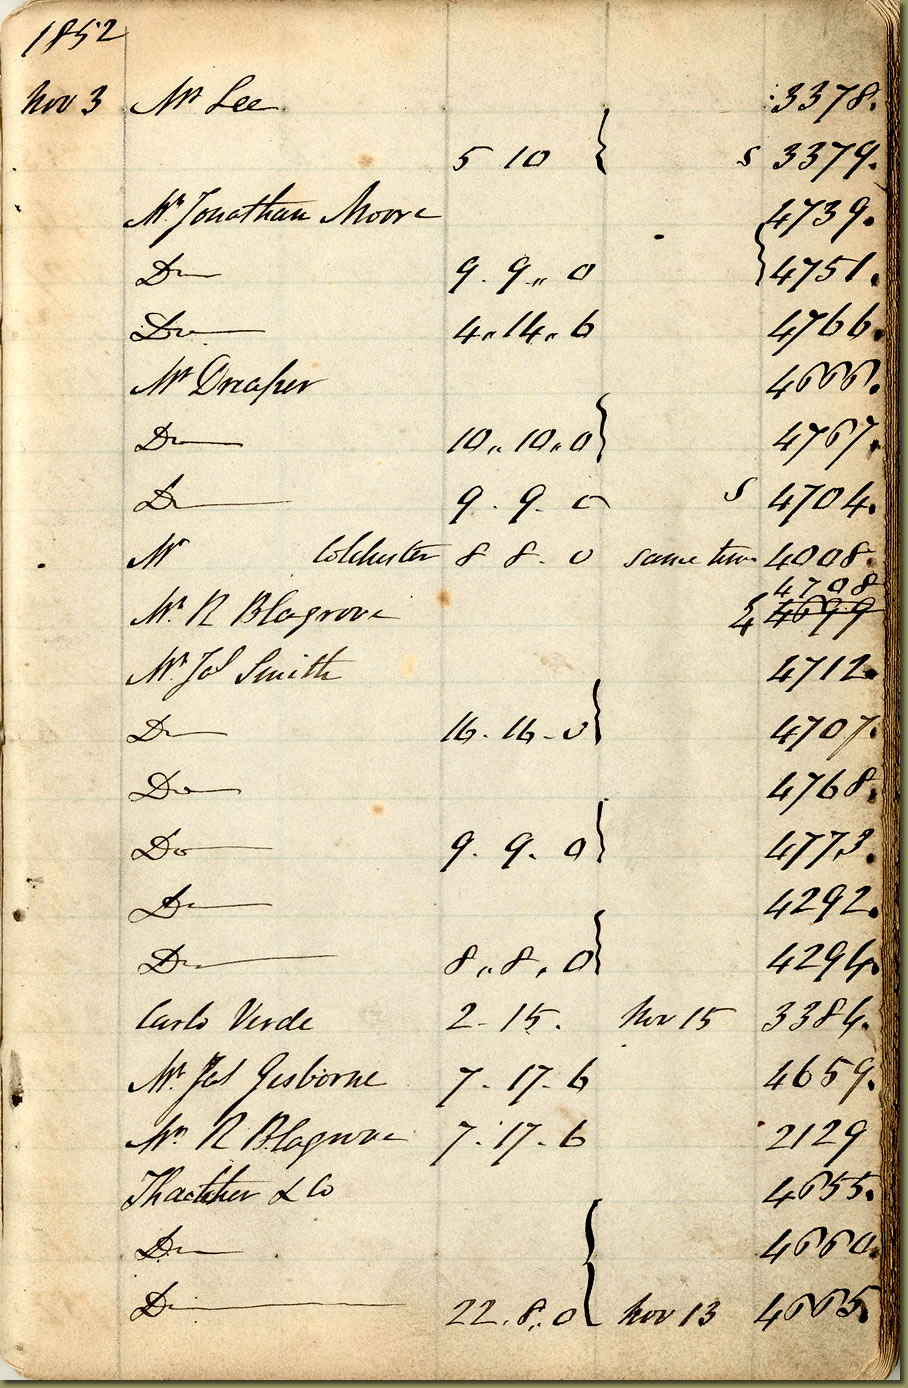 1852
Nov 3 Mr Lee 3378.
5 10 s 3379.
Mr. Jonathan Moore 4739.
Do 9. 9.. 0 4751.
Do 4.. 14.. 6 4766.
Mr Dreaper 4666.
Do 10.. 10.. 0 4767.
Do 9. 9. 0 s 4704.
Mr Colchester 8 8. 0 same time 4008.
4708
Mr. R Blagrove 4699
Mr. Jos Smith 4712.
Do 16. 16 - 0 4707.
Do 4768.
Do 9. 9. 0 4773.
Do 4292.
Do 8.. 8.. 0 4294.
Carlo Verde 2 - 15. Nov 15 3384.
Mr. Jas Gisborne 7. 17. 6 4659.
Mr. R Blagrove 7. 17. 6 2129
Thatcher & Co 4655.
Do 4660.
Do 22. 8.. 0 Nov 13 4665.